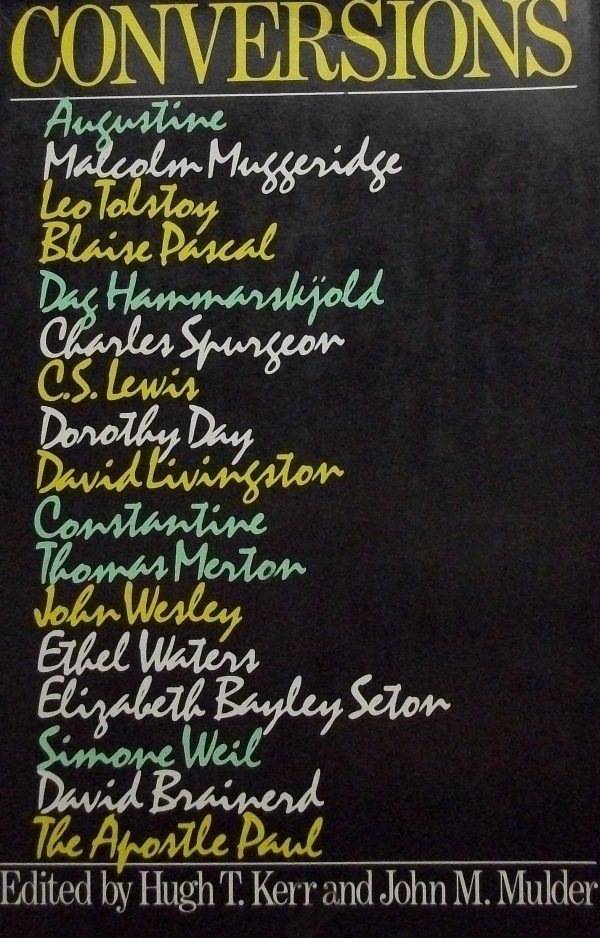 CONVERSIONS
Augustine
Malcolm Muggeridge
Leo Tolstoy
Blaise Pascal
Dag Hammarskjold
Charles Spurgeon
C.S. Lewis
Dorothy Day
David Livingston
Constantine
Thomas Merton
John Wesley
Ethel Waters
Elizabeth Bayley Seton
Simone Weil
David Brainerd
The Apostle Paul
Edited by Hugh T. Kerr and John M. Mulder